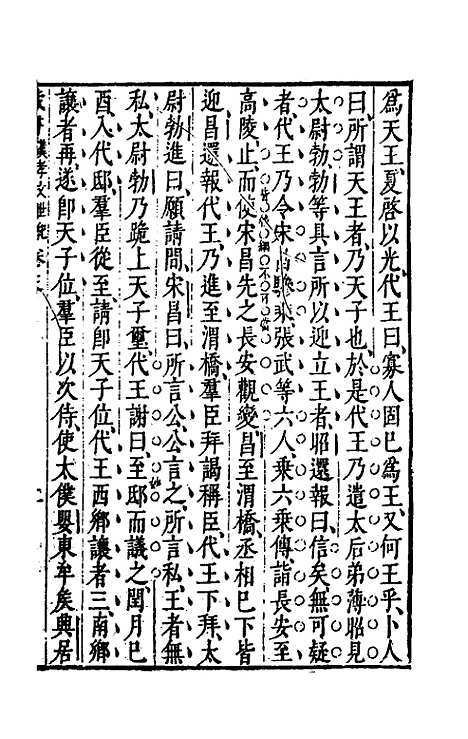 爲天王夏啓以光代王曰寡人固已爲王又何王乎卜人
曰所謂天王者乃天子也於是代王乃遣太后弟薄昭見
太尉勃勃等具言所以迎立王者昭還報曰信矣無可疑
者代王乃令宋昌驂乘張武等六人乘六乘傳詣長安至
高陵止而使宋昌先之長安觀變昌至渭橋丞相已下皆
迎昌還報代王乃進至渭橋羣臣拜謁稱臣代王下拜太
尉勃進曰願請間宋昌曰所言公公言之所言私王者無
私太尉勃乃跪上天子璽代王謝曰至邸而議之閏月己
酉入代邸羣臣從至請即天子位代王西鄉讓者三南鄉
讓者再遂即天子位羣臣以次侍使太僕嬰東牟矦興居